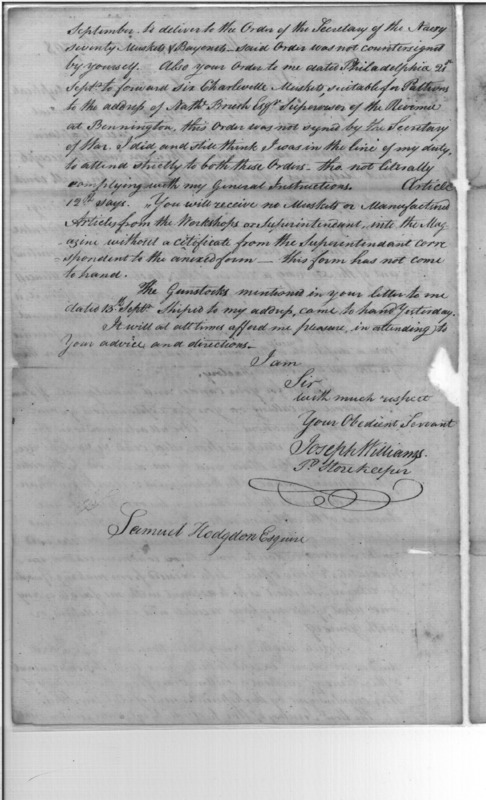 September to deliver to the Order of the Secretary of the Navy
seventy Muskets & Bayonets - said Order was not countersigned
by yourself. Also your Order to me dated Philadelphia 21st
Septr. to forward six Charleville Muskets suitable for Patterns
to the address of Nathl. Brush Esqr. Supervisor of the Revenue
at Bennington, this Order was not signed by the Secretary
of War. I did and still think I was in the line of my duty,
to attend strictly to both these Orders. tho. not literally
complying with my General Instructions. Article
12th. says. "You will receive no Muskets or Manufactured
Articles from the Workshops or Superintendant, into the Mag
azine without a citificate from the Superintendant corre
spondent to the anixed form - this form has not come
to hand.
The Gunstocks mentioned in your letter to me
dated 15th Septr. Shiped to my adress, came to hand Yesterday.
It will at all times afford me pleasure, in attending to
Your advice and directions.
I am
Sir
with much respect
Your Obedient Servant
Joseph Williams.
Pc. Store keeper
Samuel Hodgdon Esquire